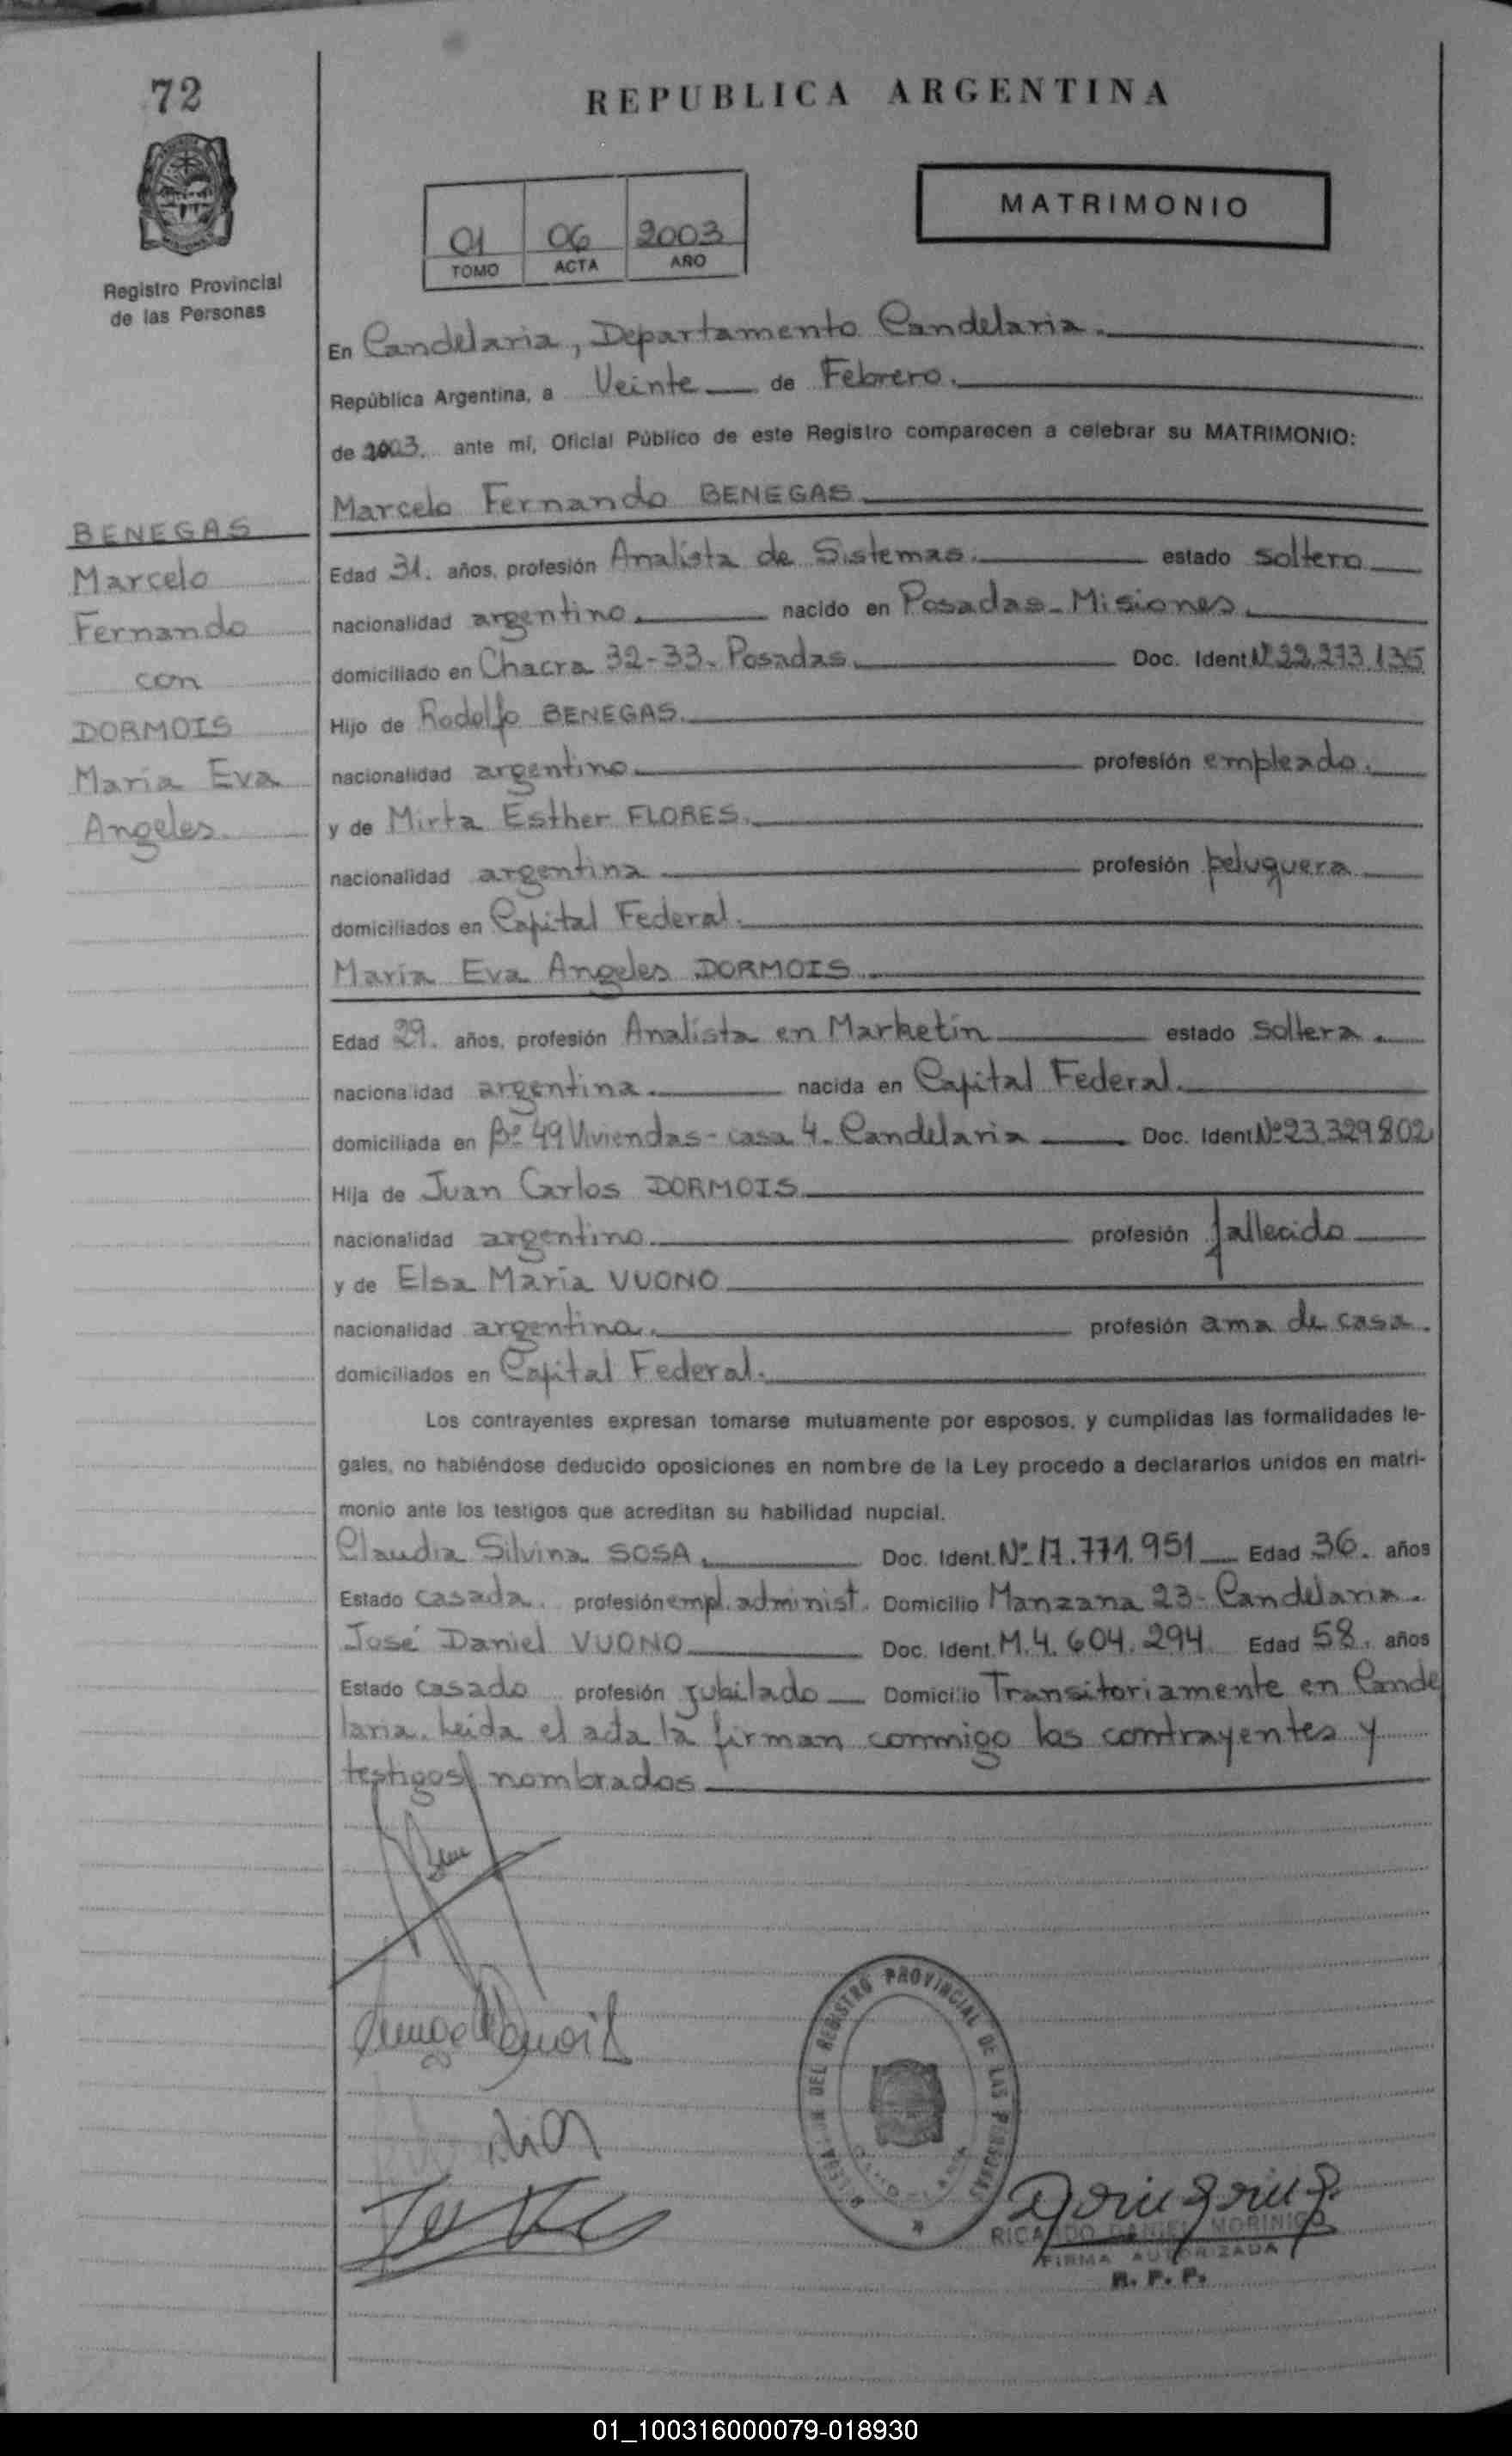 72
REPUBLICA ARGENTINA
Registro Provincial
de las Personas
01 06 2003
TOMO ACTA AÑO
MATRIMONIO
En Candelaria, Departamento Candelaria.
República Argentina, a Veinte de Febrero.
de 2003. ante mí, Oficial Público de este Registro comparecen a celebrar su MATRIMONIO:
Marcelo Fernando BENEGAS
BENEGAS
Marcelo
Fernando
con
DORMOIS
María Eva
Angeles.
Edad 31. años, profesión Analista de Sistemas. estado soltero
nacionalidad argentino. nacido en Posadas-Misiones.
domiciliado en Chacra 32-33. Posadas. Doc. Ident. Nº 22.273.135
Hijo de Rodolfo BENEGAS.
nacionalidad argentino. profesión empleado.
y de Mirta Esther FLORES.
nacionalidad argentina profesión peluquera
domiciliados en Capital Federal.
María Eva Angeles DORMOIS
Edad 29. años, profesión Analista en Marketin estado soltera.
nacionalidad argentina. nacida en Capital Federal.
domiciliada en Bº 49 Viviendas - casa 4. Candelaria Doc. Ident. Nº 23.329.802
Hija de Juan Carlos DORMOIS
nacionalidad argentino. profesión fallecido
y de Elsa María VUONO
nacionalidad argentina. profesión ama de casa.
domiciliados en Capital Federal.
Los contrayentes expresan tomarse mutuamente por esposos, y cumplidas las formalidades le-
gales, no habiéndose deducido oposiciones en nombre de la Ley procedo a declararlos unidos en matri-
monio ante los testigos que acreditan su habilidad nupcial.
Claudia Silvina SOSA. Doc. Ident. Nº 17.771.951 Edad 36. años
Estado casada. profesión empl. administ. Domicilio Manzana 23- Candelaria.
José Daniel VUONO Doc. Ident. M.4.604.294. Edad 58. años
Estado casado profesión jubilado Domicilio Transitoriamente en Cande
laria. Leida el acta la firman conmigo los contrayentes y
testigos nombrados
DEL REGISTRO PROVINCIAL DE LAS PERSONAS
RICARDO DANIEL MORINIGO
FIRMA AUTORIZADA
R. P. P.
01_100316000079-018930